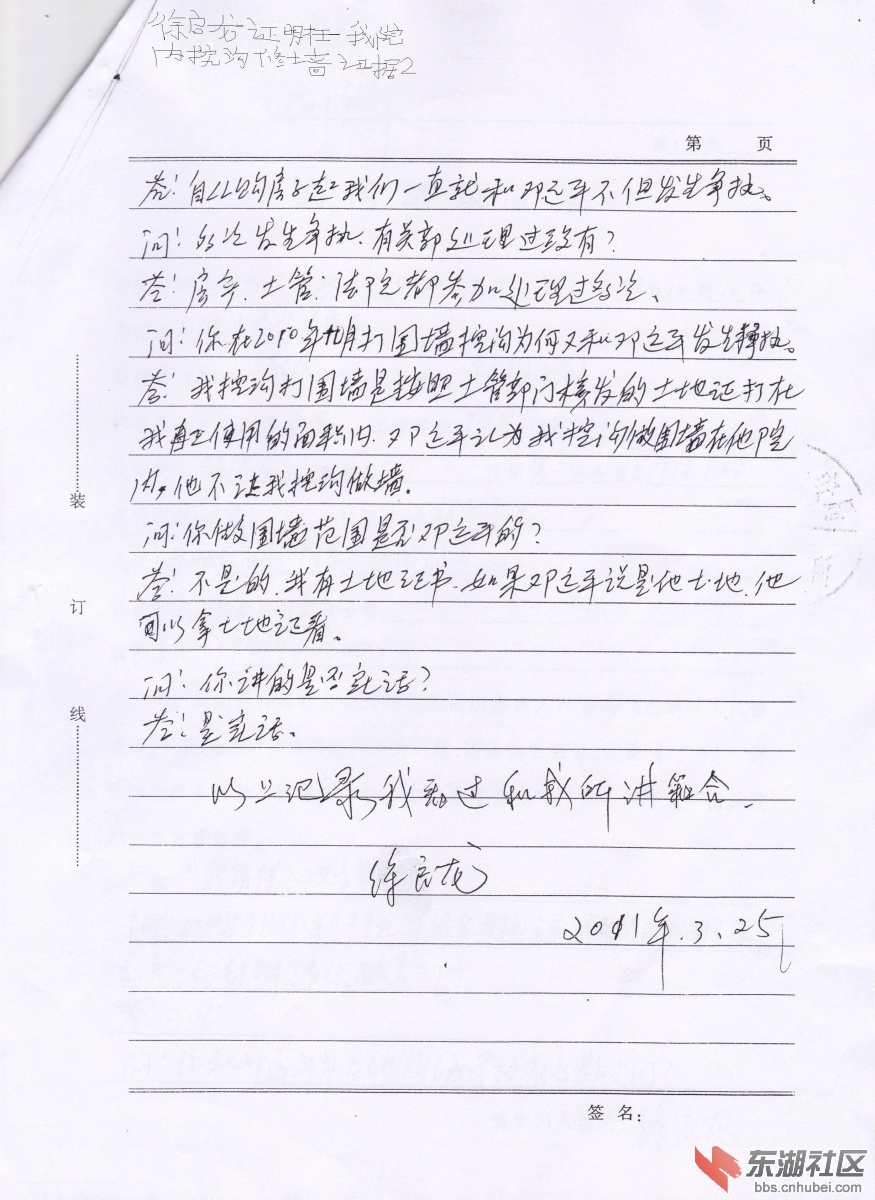 徐良龙证明在我院
内挖沟修墙证据2
第 页
答：自从此房子起我们一直就和邓运平不但发生争执。
问：的次发生争执、有关部处理过没有？
答：房产、土管、法院都参加处理过多次。
问：你在2010年十月打围墙挖沟为何又和邓运平发生争执。
答：我挖沟打围墙是按照土管部门核发的土地证打在
我真正使用的面积内、邓运平认为我挖沟做围墙在他院
内，他不让我挖沟做墙。
问：你做围墙范围是否邓运平的？
答：不是的、我有土地证书、如果邓运平说是他土地、他
可以拿土地证看。
问：你讲的是否实话？
答：是实话。
以上记录我看过和我所讲符合.
徐良龙
2011年.3、25
装
订
线
签名：
东湖社区
bbs.cnhubei.com